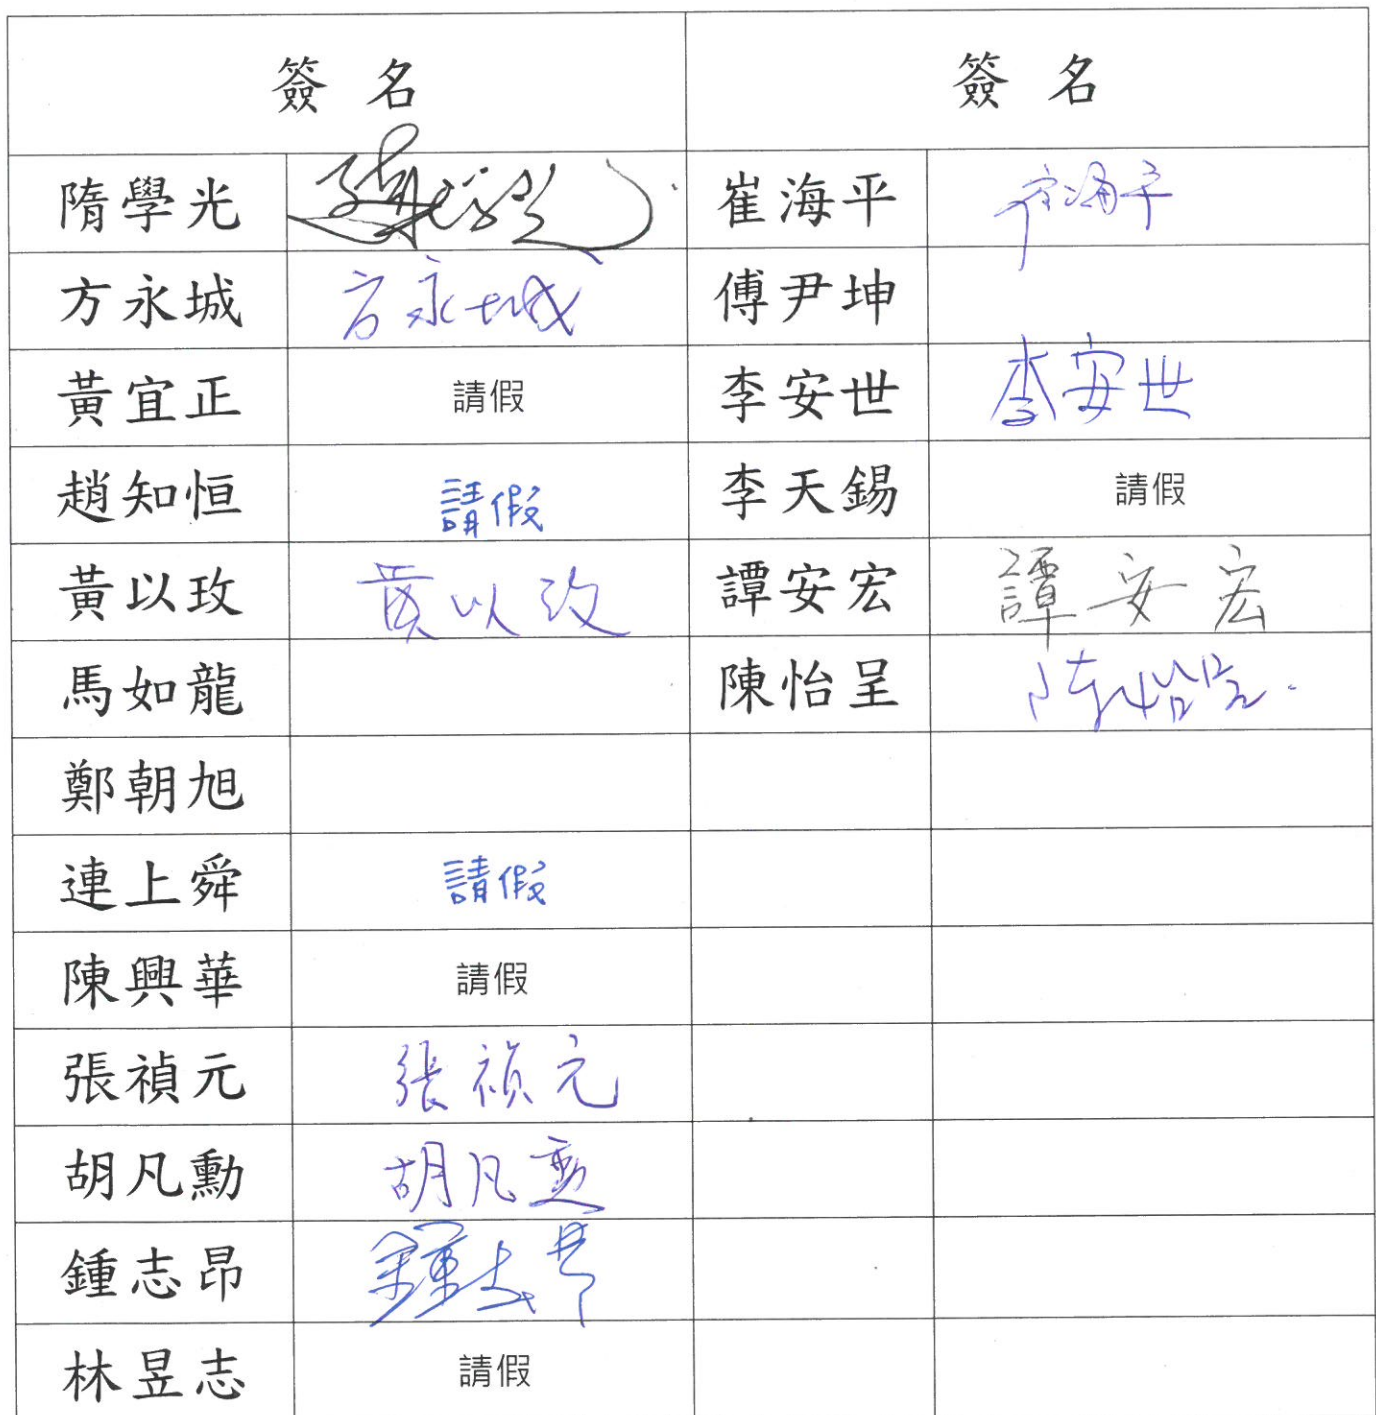 簽名 簽名
隋學光 崔海平 崔海平
方永城 方永城 傅尹坤
黃宜正 請假 李安世 李安世
趙知恒 請假 李天錫 請假
黃以玫 黃以玫 譚安宏 譚安宏
馬如龍 陳怡呈 陳怡呈
鄭朝旭
連上舜 請假
陳興華 請假
張禎元 張禎元
胡凡勳 胡凡勳
鍾志昂 鍾志昂
林昱志 請假